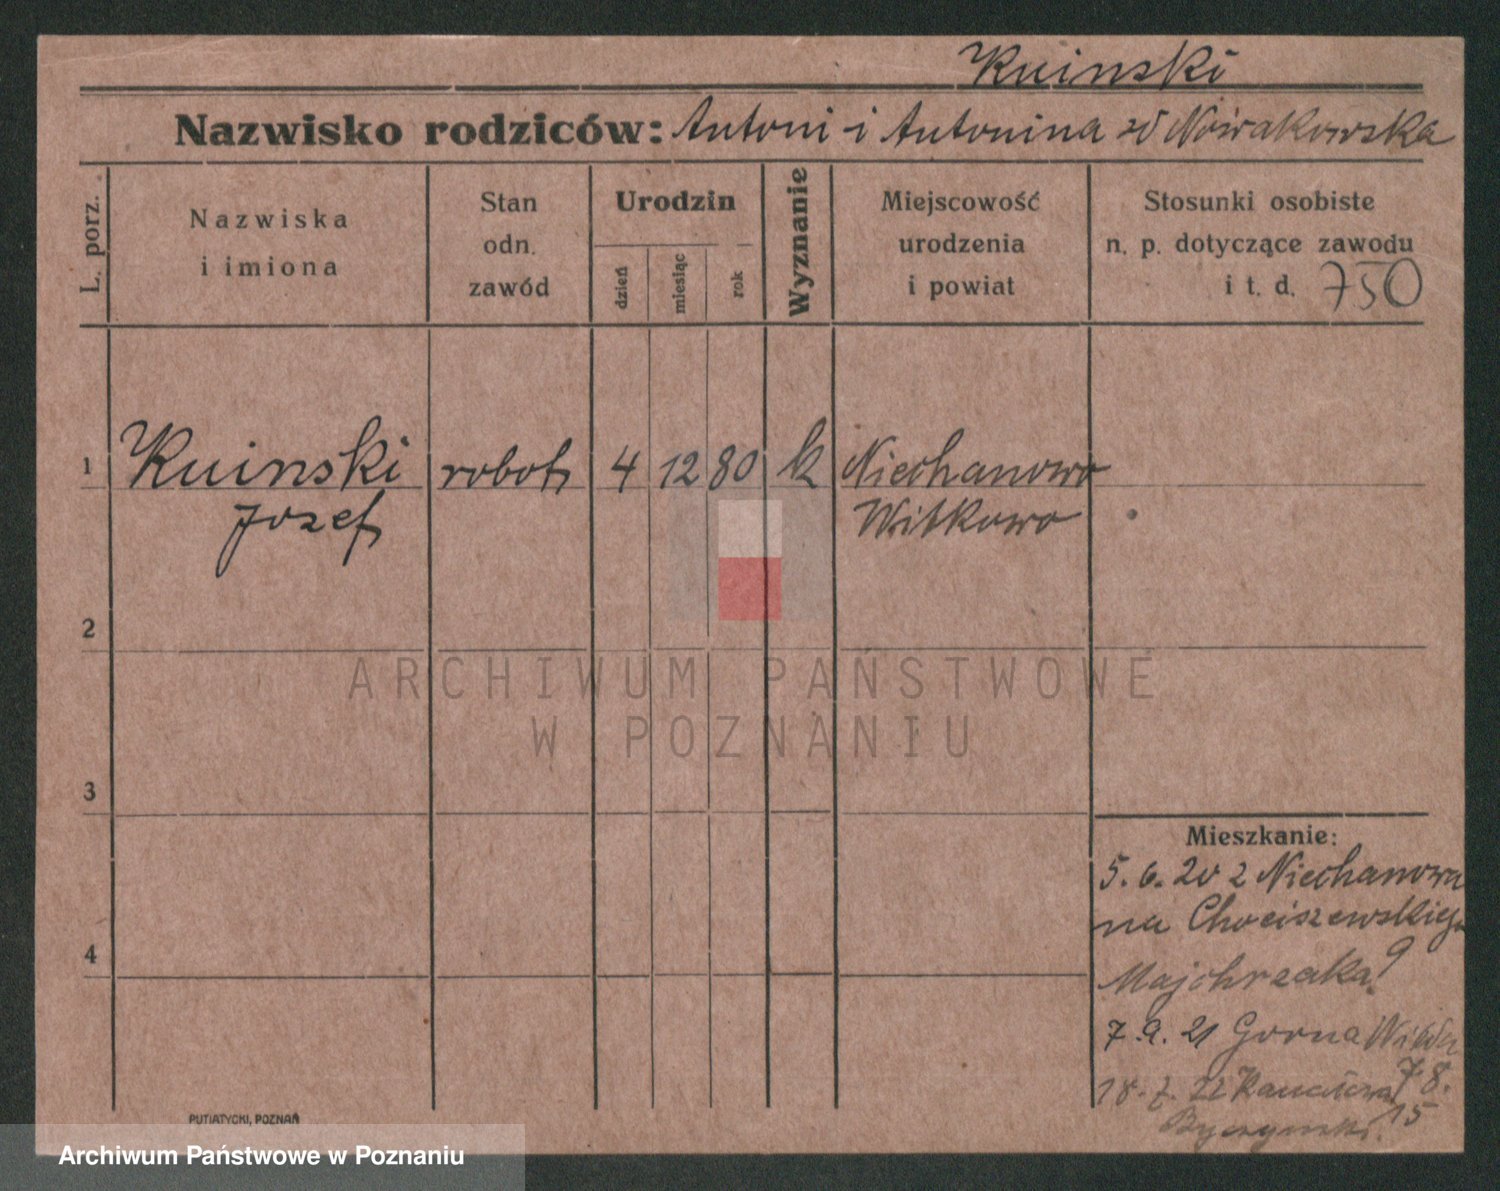 Kuinski
Nazwisko rodziców: Antoni i Antonina zd Nowakowska
L. porz.
Nazwiska
i imiona
Stan
odn.
zawód
Urodzin
dzień
miesiąc
rok
Wyznanie
Miejscowość
urodzenia
i powiat
Stosunki osobiste
n. p. dotyczące zawodu
i t. d. 750
1 Kuinski robotn 4 12 80 k Niechanowo
Józef Witkowo
2
3
4
Mieszkanie:
5. 6. 20 z Niechanowa
na Chociszewskiego
Majchrzaka 9
7. 9. 21 Gorna Wilda
78.
18. 7. 22
15
PUTIATYCKI, POZNAŃ
ARCHIWUM PAŃSTWOWE
W POZNANIU
Archiwum Państwowe w Poznaniu